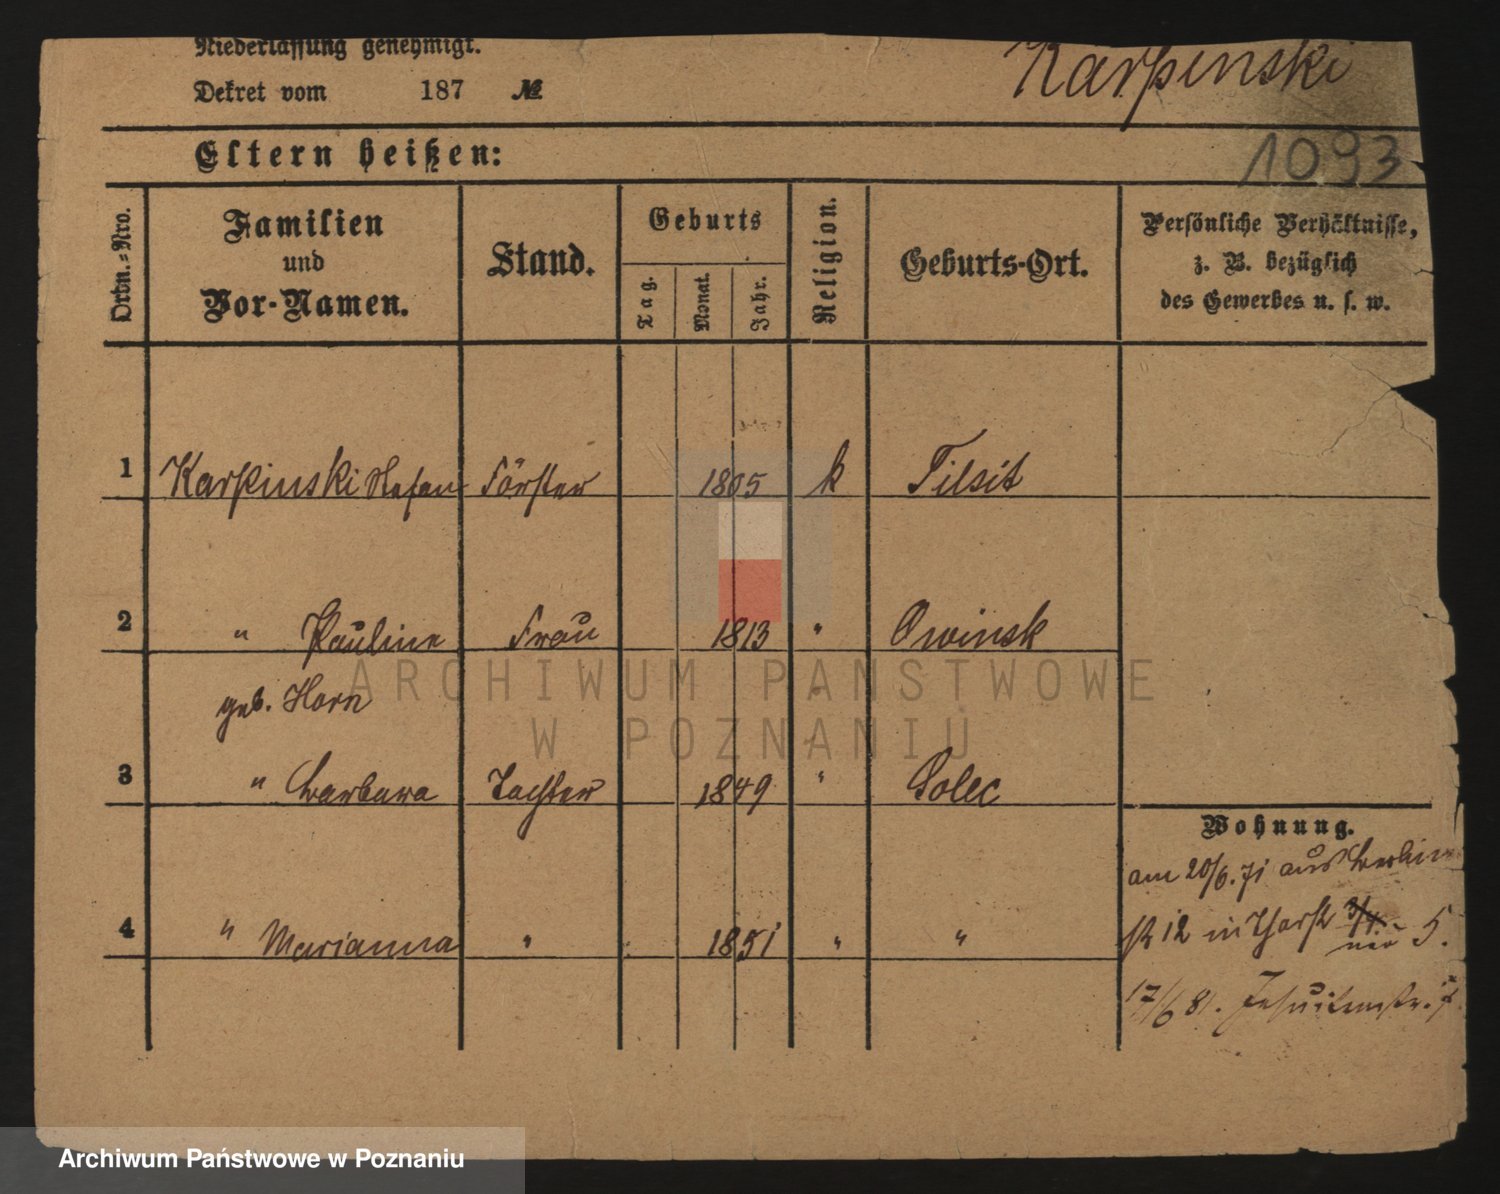 Niederlassung genehmigt.
Karpinski
Dekret vom 187 №
1093
Eltern heißen:
Ordn.-Nro.
Familien
und
Vor-Namen.
Stand.
Geburts
Tag.
Monat.
Jahr.
Religion.
Geburts-Ort.
Persönliche Verhältnisse,
z. B. bezüglich
des Gewerbes u. s. w.
1 Karpinski Stefan Förster 1805 k Tilsit
2 " Pauline Frau 1813 " Owinsk
geb. Horn
3 " Barbara Tochter 1849 " Solec
Wohnung.
am 20/6. 71 aus Berliner
4 " Marianna " 1851 " "
str 12 in 5.
17/6 81. Jesuitenstr. 7.
ARCHIWUM PAŃSTWOWE
W POZNANIU
Archiwum Państwowe w Poznaniu